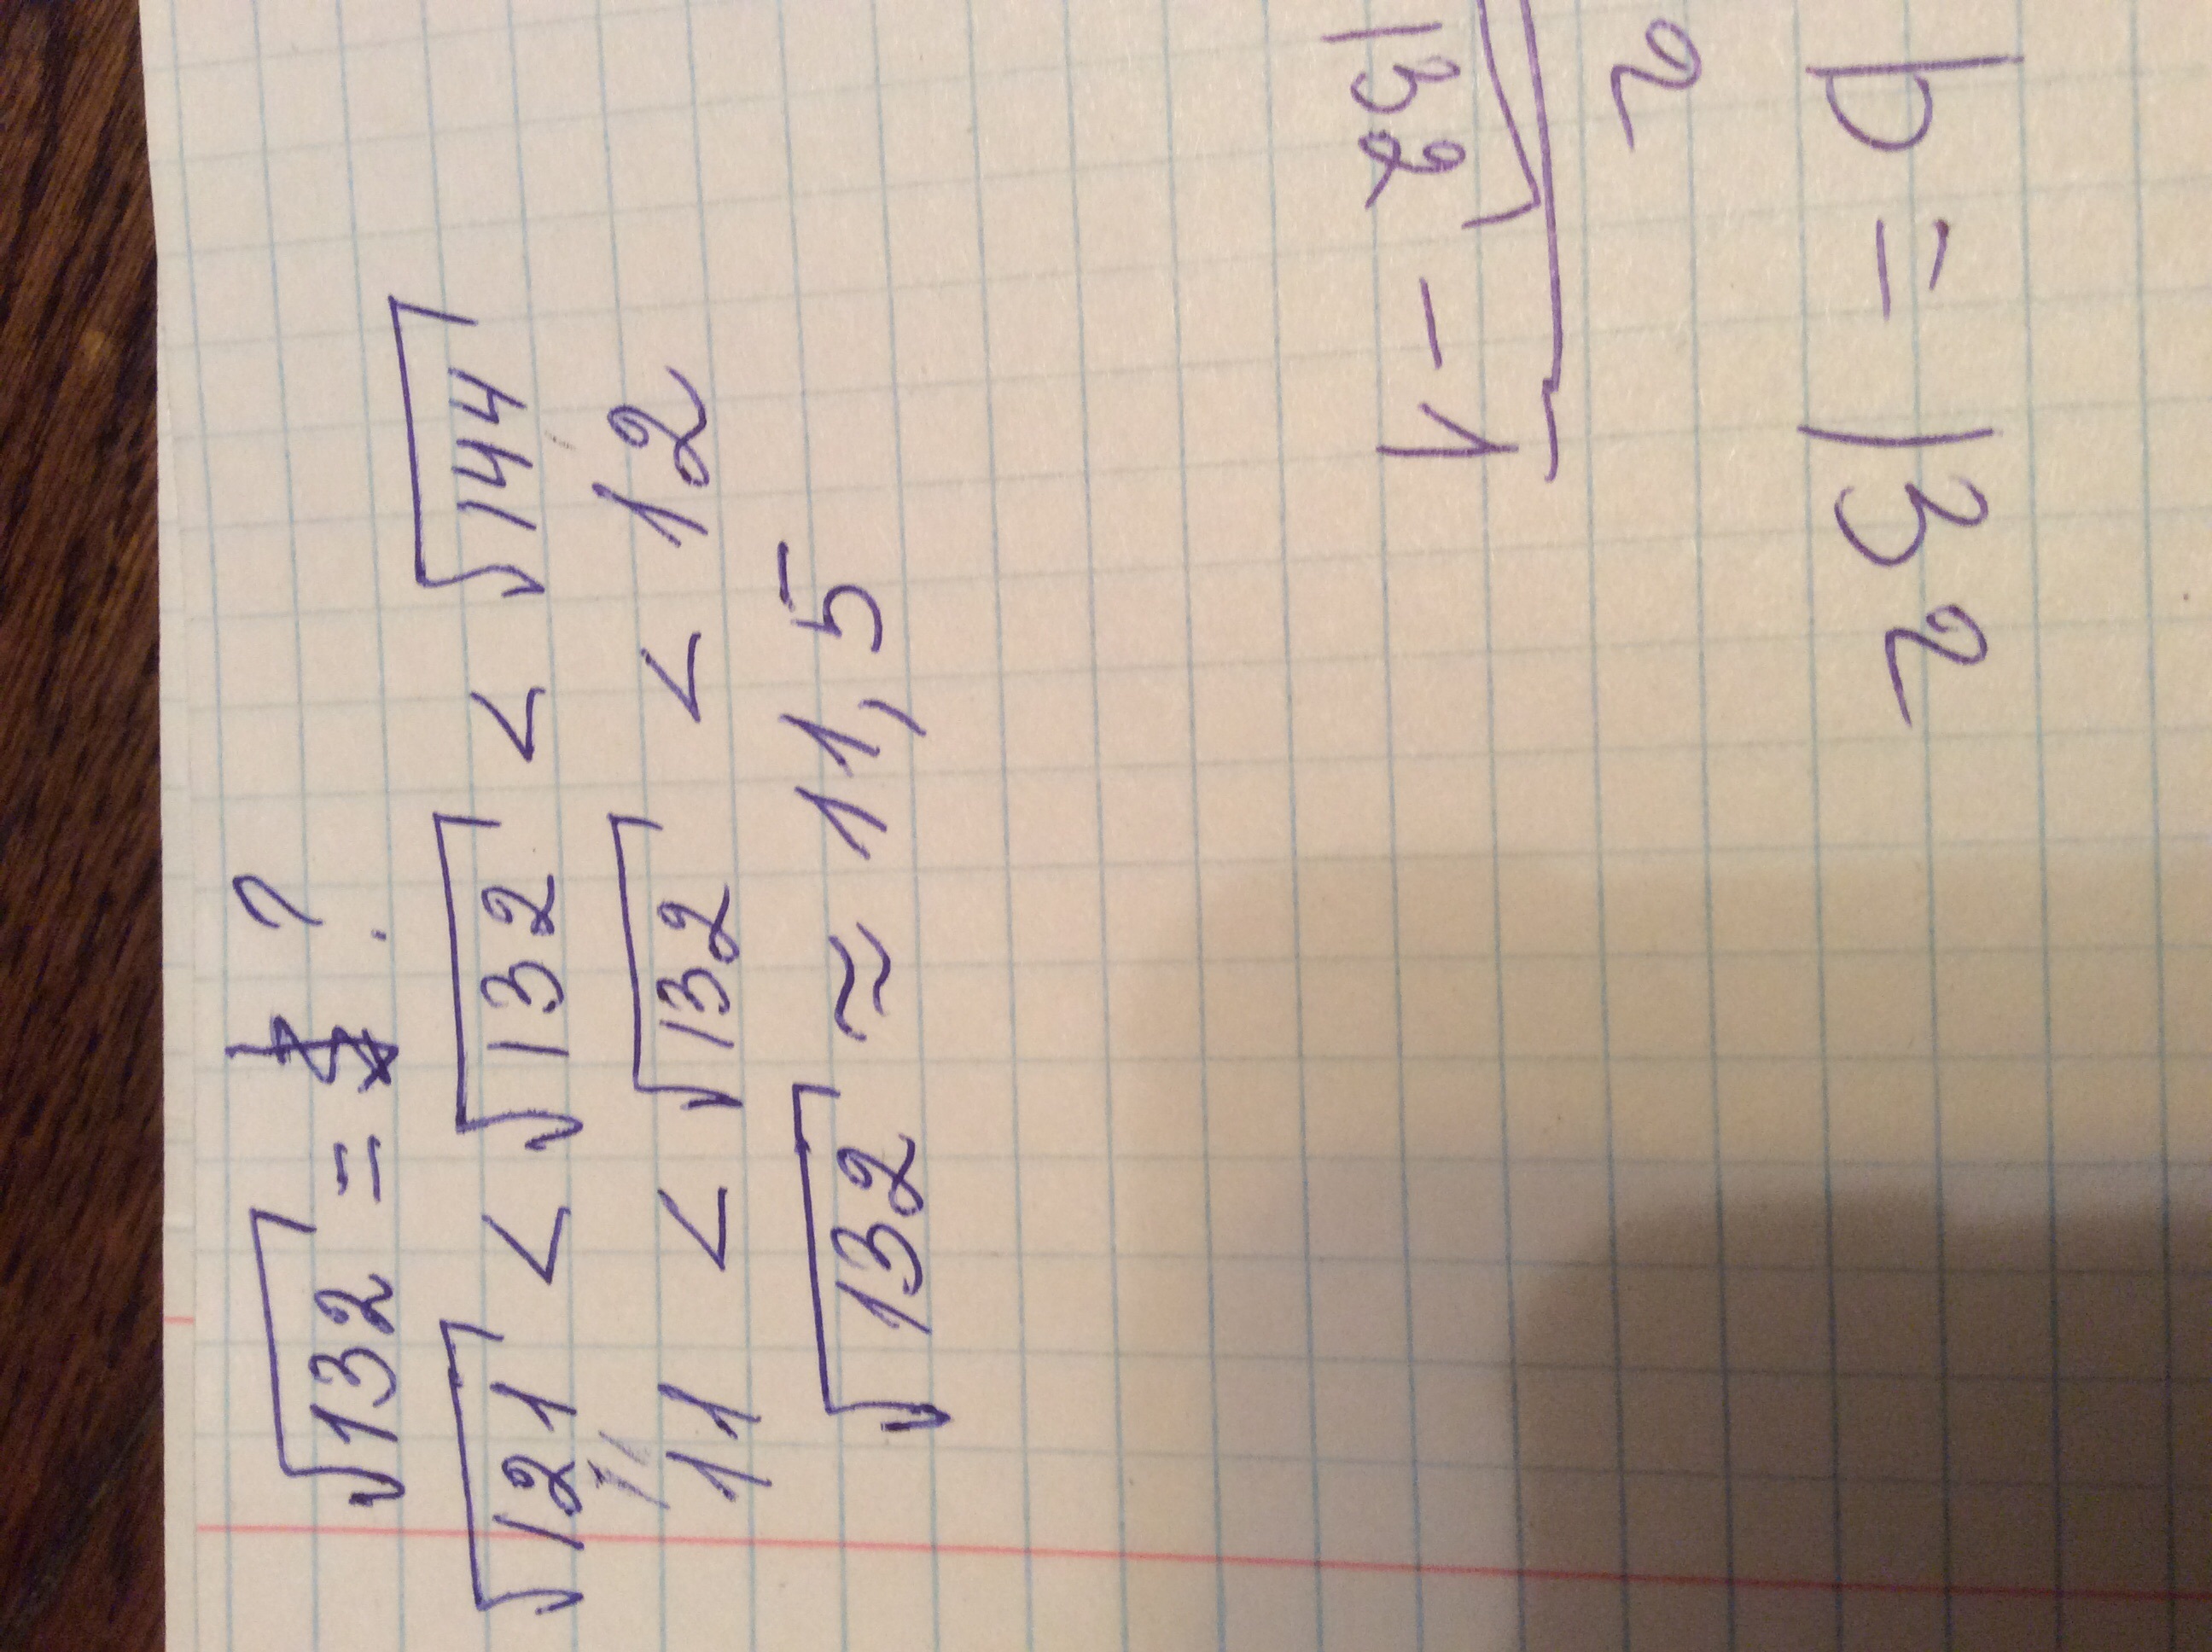 √132 = ?
√121 < √132 < √144
11 < √132 < 12
√132 ≈ 11,5
132 - 1
2
b = 132